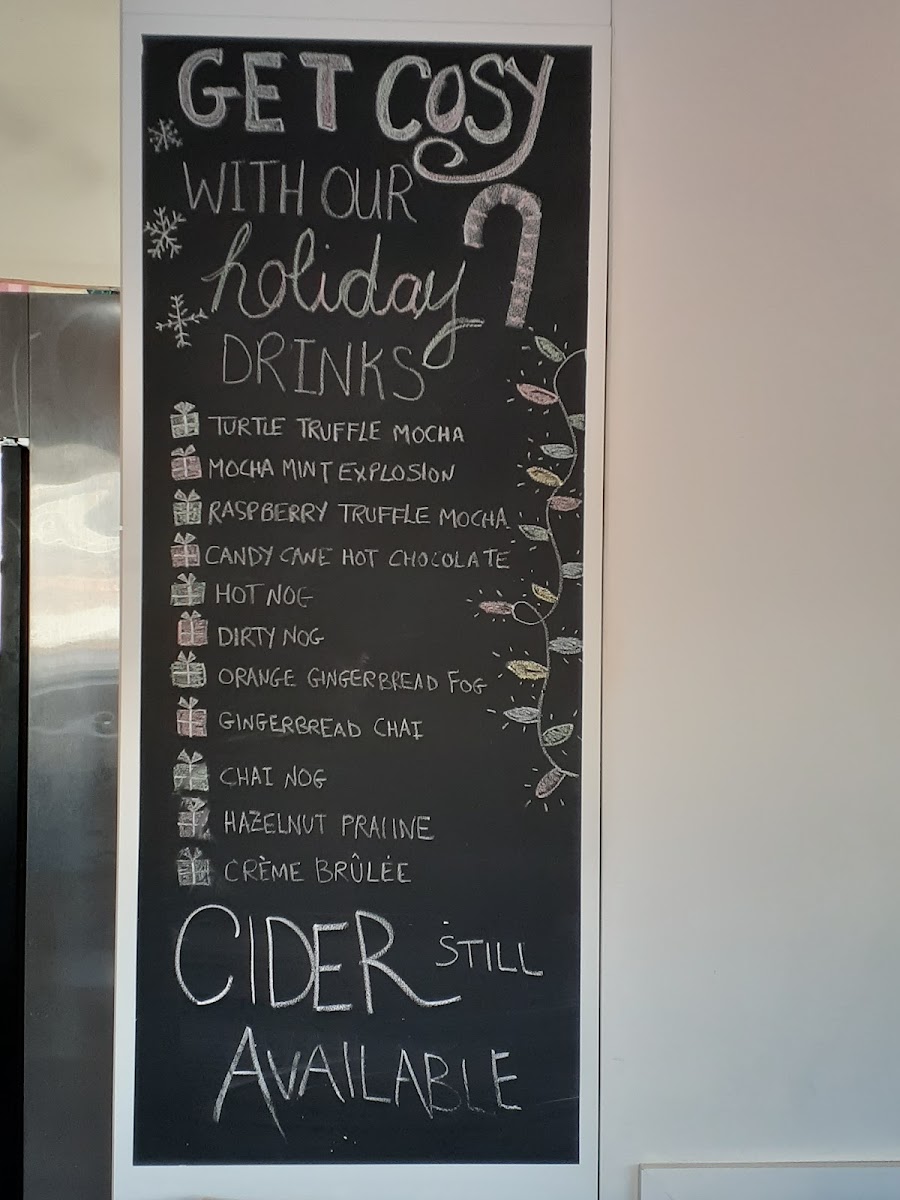 GET COSY
WITH OUR
holiday
DRINKS
TURTLE TRUFFLE MOCHA
MOCHA MINT EXPLOSION
RASPBERRY TRUFFLE MOCHA
CANDY CANE HOT CHOCOLATE
HOT NOG
DIRTY NOG
ORANGE GINGERBREAD FOG
GINGERBREAD CHAI
CHAI NOG
HAZELNUT PRALINE
CRÈME BRÛLÉE
CIDER STILL
AVAILABLE